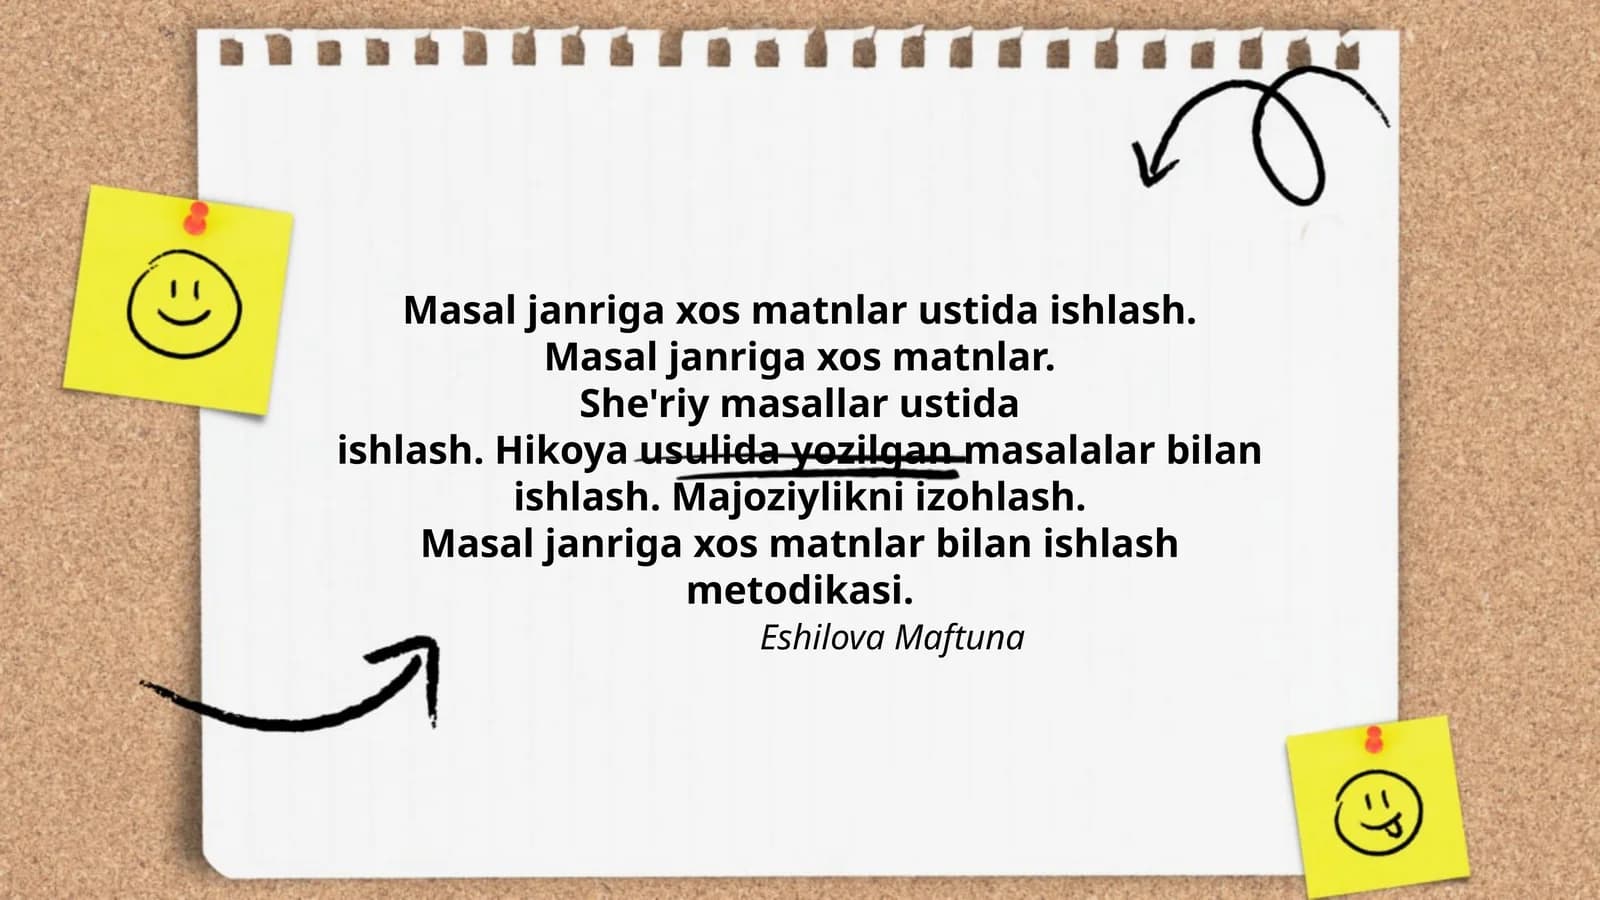 Masal janriga xos matnlar ustida ishlash.
Masal janriga xos matnlar.
She'riy masallar ustida
ishlash. Hikoya usulida yozilgan masalalar bilan
ishlash. Majoziylikni izohlash.
Masal janriga xos matnlar bilan ishlash
metodikasi.
Eshilova Maftuna